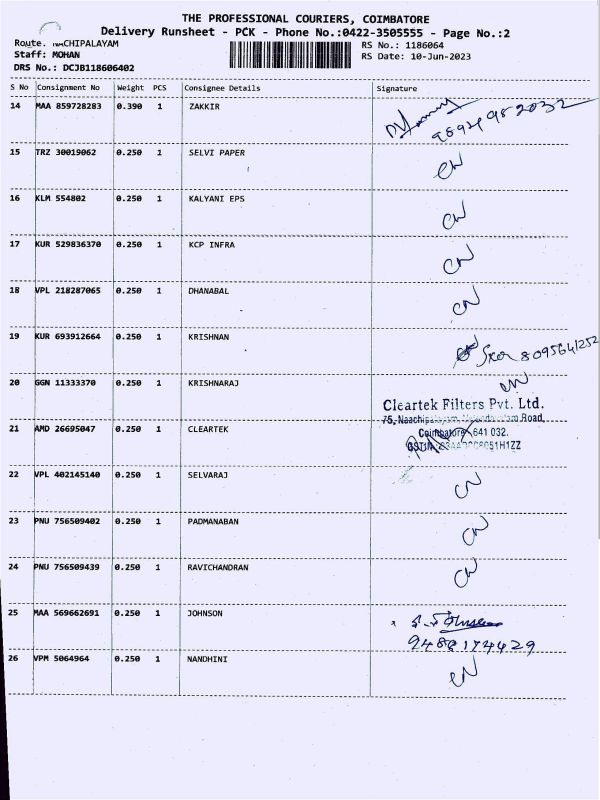 THE PROFESSIONAL COURIERS, COIMBATORE
Delivery Runsheet - PCK - Phone No.:0422-3505555 - Page No.:2
Route. NACHIPALAYAM
RS No.: 1186064
Staff: MOHAN
RS Date: 10-Jun-2023
DRS No.: DCJB118606402
S No Consignment No Weight PCS Consignee Details Signature
14 MAA 859728283 0.390 1 ZAKKIR
15 TRZ 30019062 0.250 1 SELVI PAPER CN
16 KLM 554802 0.250 1 KALYANI EPS CN
17 KUR 529836370 0.250 1 KCP INFRA CN
18 VPL 218287065 0.250 1 DHANABAL CN
19 KUR 693912664 0.250 1 KRISHNAN
20 GGN 11333370 0.250 1 KRISHNARAJ CN
Cleartek Filters Pvt. Ltd.
75, Naachipalayam, Road,
21 AMD 26695047 0.250 1 CLEARTEK
Coimbatore 641 032.
22 VPL 402145140 0.250 1 SELVARAJ CN
23 PNU 756509402 0.250 1 PADMANABAN CN
24 PNU 756509439 0.250 1 RAVICHANDRAN CN
25 MAA 569662691 0.250 1 JOHNSON
9488174429
26 VPM 5064964 0.250 1 NANDHINI CN